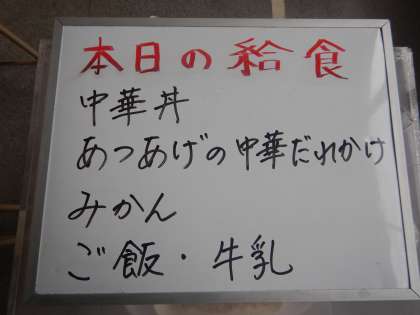 本日の給食
中華丼
あつあげの中華だれかけ
みかん
ご飯・牛乳